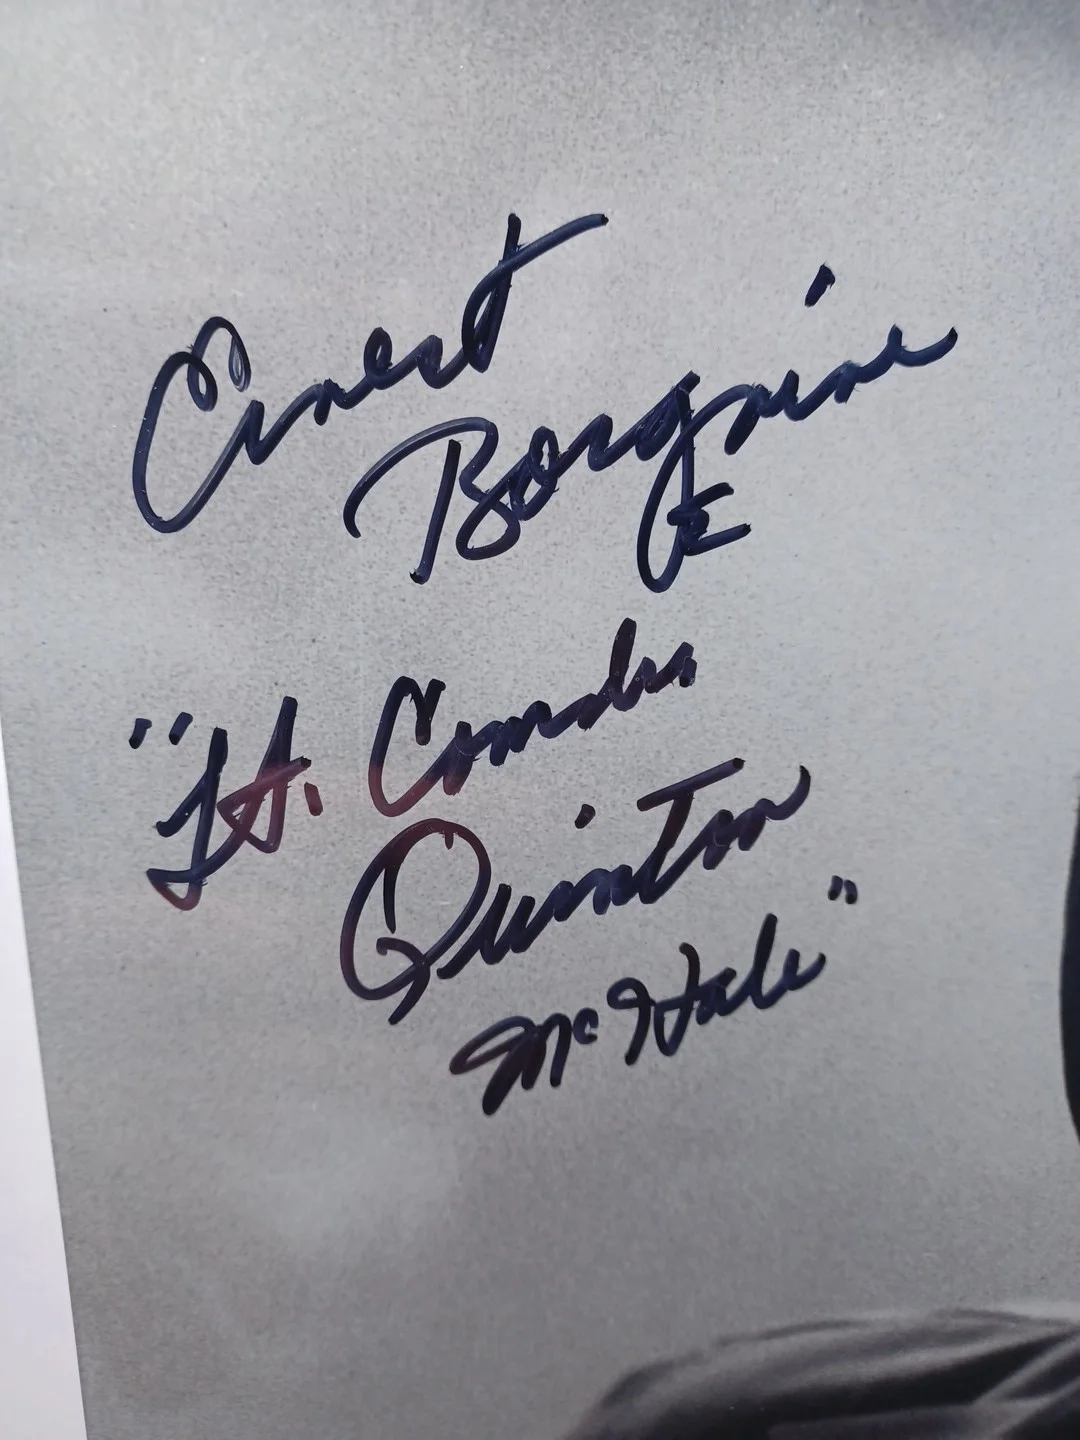 Ernest
Borgnine
"Lt. Comdr.
Quinton
McHale"